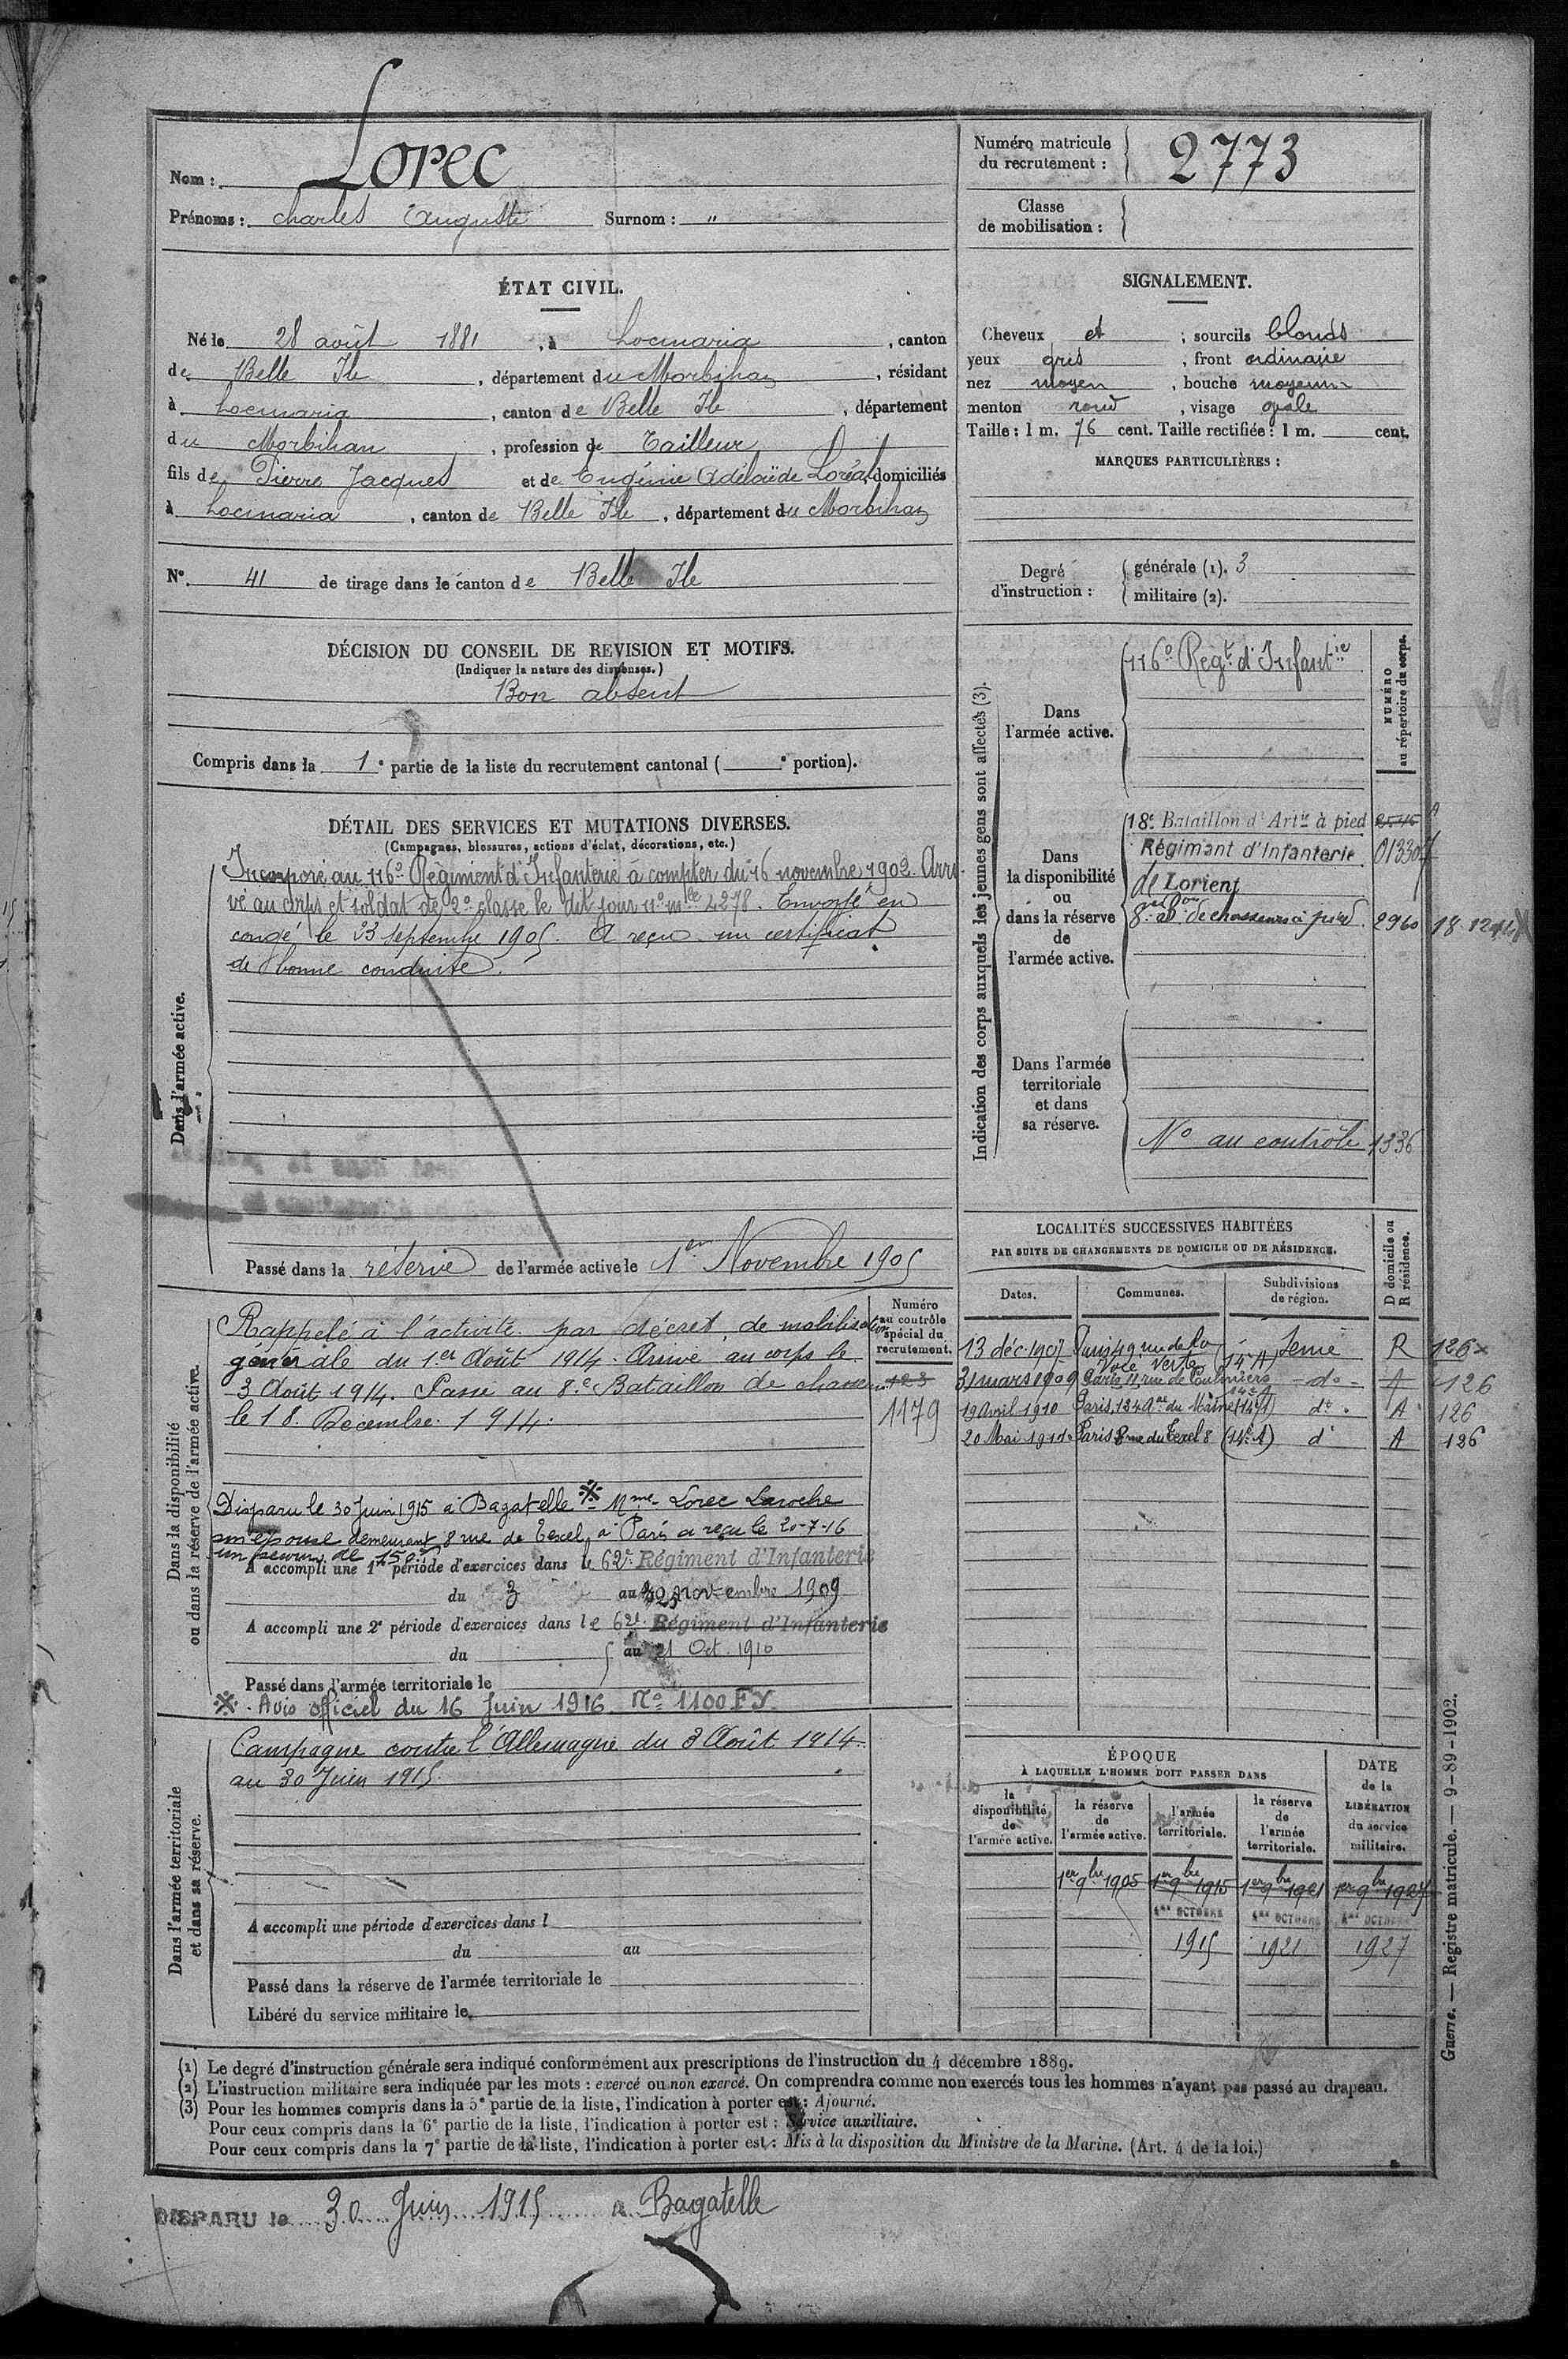 Nom : Lorec
Prénoms : Charles Auguste Surnom : "
Numéro matricule du recrutement : 2773
Classe de mobilisation :
ÉTAT CIVIL.
Né le 28 août 1881, à Locmaria, canton
de Belle Ile, département du Morbihan, résidant
à Locmaria, canton de Belle Ile, département
du Morbihan, profession de Tailleur
fils de Pierre Jacques et de Eugénie Adélaïde Loréal domiciliés
à Locmaria, canton de Belle Ile, département du Morbihan
N° 41 de tirage dans le canton de Belle Ile
SIGNALEMENT.
Cheveux et ; sourcils blonds
yeux gris, front ordinaire
nez moyen, bouche moyenne
menton rond, visage ovale
Taille : 1 m. 76 cent. Taille rectifiée : 1 m. cent.
MARQUES PARTICULIÈRES :
Degré d'instruction : générale (1). 3
militaire (2).
DÉCISION DU CONSEIL DE REVISION ET MOTIFS.
(Indiquer la nature des dispenses.)
Bon absent
Compris dans la 1e partie de la liste du recrutement cantonal ( e portion).
DÉTAIL DES SERVICES ET MUTATIONS DIVERSES.
(Campagnes, blessures, actions d'éclat, décorations, etc.)
Dans l'armée active.
Incorporé au 116e Régiment d'Infanterie à compter du 16 novembre 1902. Arri-
vé au corps et soldat de 2e classe le dit jour n° mle 4278. Envoyé en
congé le 23 septembre 1905. A reçu un certificat
de bonne conduite.
Passé dans la réserve de l'armée active le 1er Novembre 1905
Indication des corps auxquels les jeunes gens sont affectés (3).
NUMÉRO au répertoire du corps.
Dans l'armée active.
116e Régt d'Infantie
Dans la disponibilité ou dans la réserve de l'armée active.
18e Bataillon d'Artie à pied
Régiment d'Infanterie 01330
de Lorient
8e de chasseurs à pied. 2960 18.12.14
Dans l'armée territoriale et dans sa réserve.
N° au contrôle 1336
LOCALITÉS SUCCESSIVES HABITÉES
PAR SUITE DE CHANGEMENTS DE DOMICILE OU DE RÉSIDENCE.
Dates. Communes. Subdivisions de région. D domicile ou R résidence.
13 déc. 1907 Paris 49 rue de la Voie Verte (14e A) Seine R 126
31 mars 1909 Paris 11, rue de Coulmiers 14e A do A 126
19 Avril 1910 Paris, 124 Ave du Maine (14e A) do A 126
20 Mai 191 Paris 8 rue du Texel 8 (14e A) d° A 126
Dans la disponibilité ou dans la réserve de l'armée active.
Numéro au contrôle spécial du recrutement.
123
1179
Rappelé à l'activité par décret de mobilisation
générale du 1er Août 1914. Arrivé au corps le
3 Août 1914. Passé au 8e Bataillon de chasseurs
le 18 Décembre 1914.
Disparu le 30 Juin 1915 à Bagatelle ※ Mme Lorec Laroche
son épouse demeurant 8 rue de Texel à Paris a reçu le 20-7-16
un secours de 150 f
A accompli une 1re période d'exercices dans le 62e Régiment d'Infanterie
du 3 au 25 novembre 1909
A accompli une 2e période d'exercices dans le 62e Régiment d'Infanterie
du 5 au 21 Oct. 1910
Passé dans l'armée territoriale le
※. Avis officiel du 16 Juin 1916. N° 1100 FY.
Dans l'armée territoriale et dans sa réserve.
Campagne contre l'Allemagne du 3 Août 1914
au 30 Juin 1915.
A accompli une période d'exercices dans l
du au
Passé dans la réserve de l'armée territoriale le
Libéré du service militaire le
ÉPOQUE
À LAQUELLE L'HOMME DOIT PASSER DANS
la disponibilité de l'armée active. la réserve de l'armée active. l'armée territoriale. la réserve de l'armée territoriale. DATE de la LIBÉRATION du service militaire.
1er 9bre 1905 1er 9bre 1915 1er 9bre 1921 1er 9bre 1927
1er OCTOBRE 1er OCTOBRE 1er OCTOBRE
1915 1921 1927
Guerre. — Registre matricule. — 9-89-1902.
(1) Le degré d'instruction générale sera indiqué conformément aux prescriptions de l'instruction du 4 décembre 1889.
(2) L'instruction militaire sera indiquée par les mots : exercé ou non exercé. On comprendra comme non exercés tous les hommes n'ayant pas passé au drapeau.
(3) Pour les hommes compris dans la 5e partie de la liste, l'indication à porter est : Ajourné.
Pour ceux compris dans la 6e partie de la liste, l'indication à porter est : Service auxiliaire.
Pour ceux compris dans la 7e partie de la liste, l'indication à porter est : Mis à la disposition du Ministre de la Marine. (Art. 4 de la loi.)
DISPARU le 30 Juin 1915 à Bagatelle